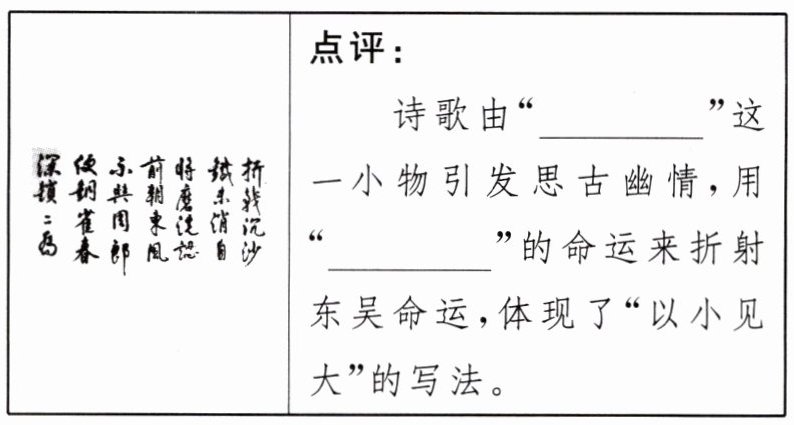 折戟沉沙
鐵未消自
將磨洗認
前朝東風
不與周郎
便銅雀春
深鎖二喬
点评：
诗歌由“__________”这
一小物引发思古幽情，用
“__________”的命运来折射
东吴命运，体现了“以小见
大”的写法。